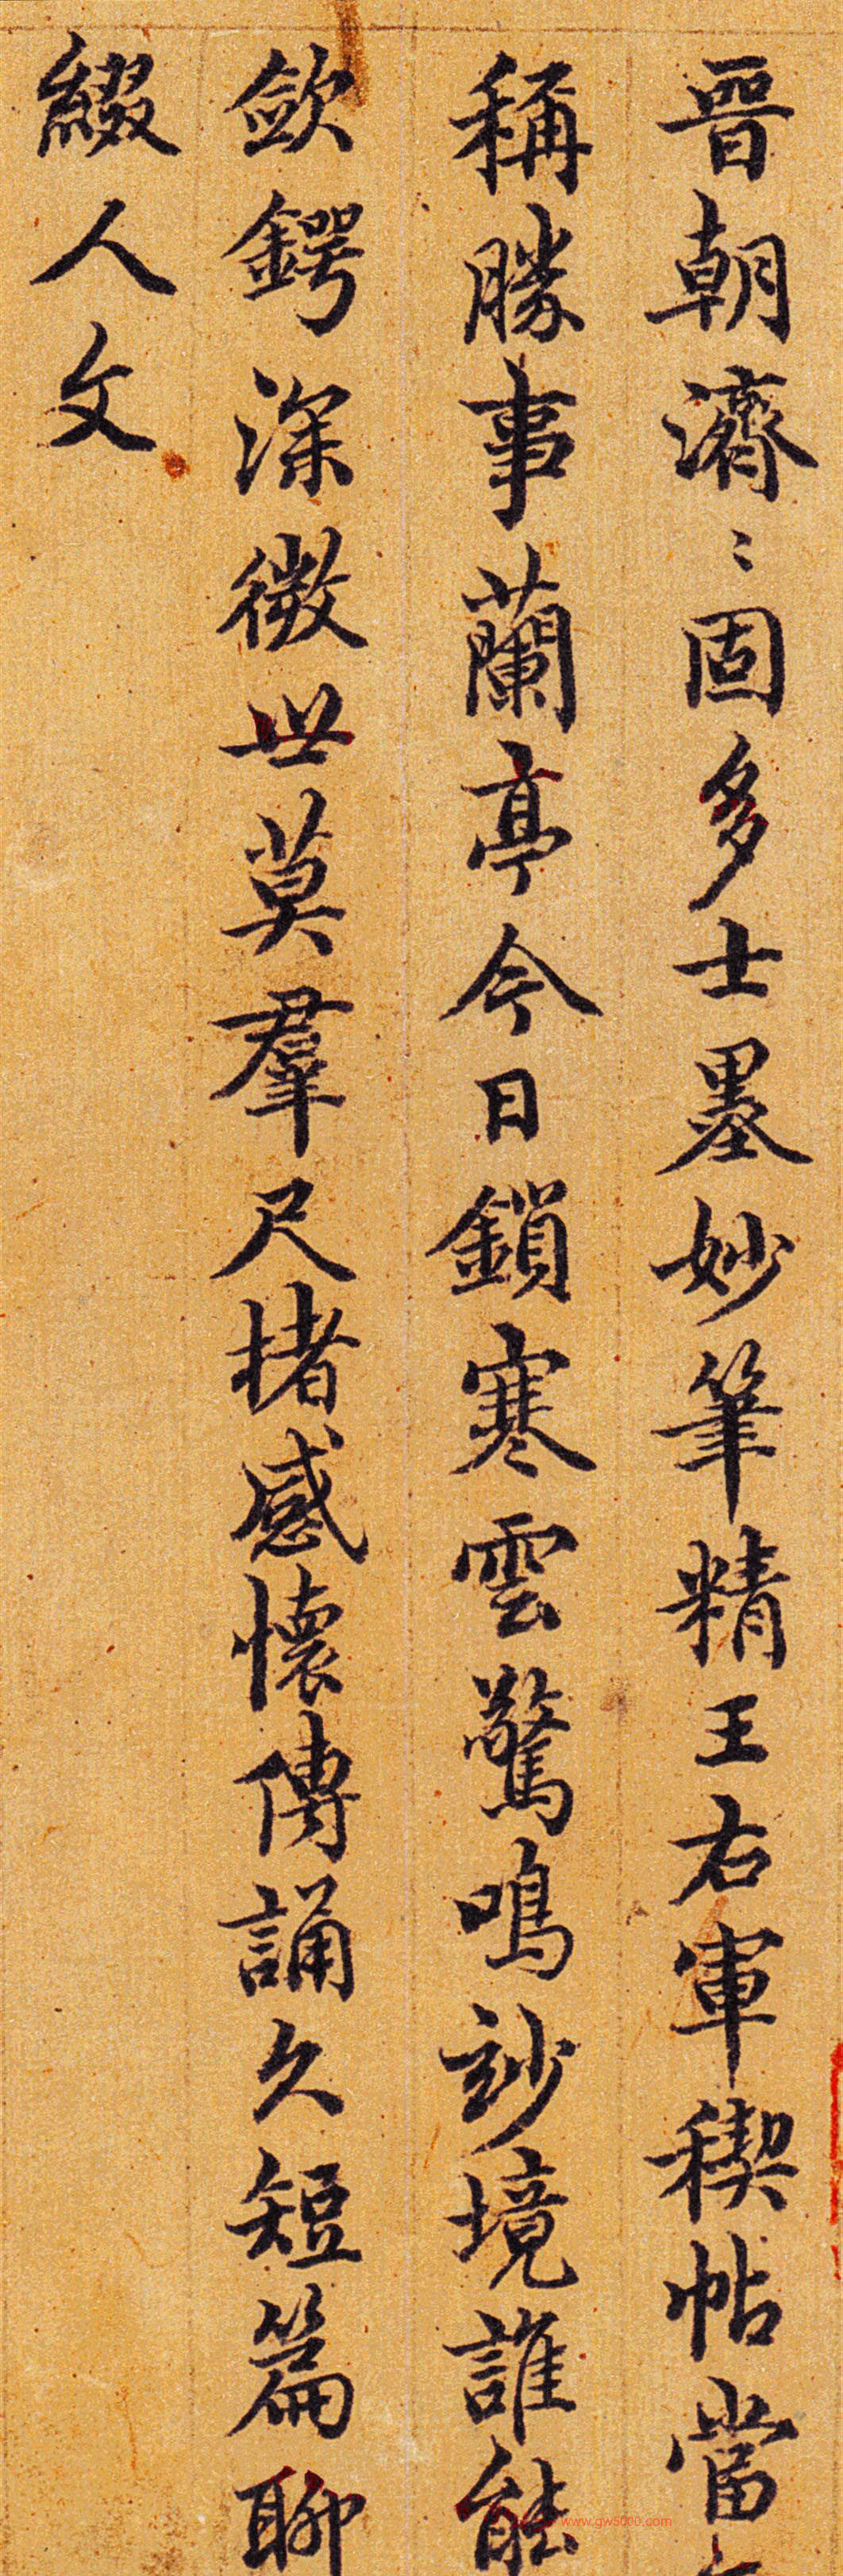 晉朝濟〻固多士墨妙筆精王右軍稧帖當
稱勝事蘭亭今日鎖寒雲驚鳴玅境誰能
斂鍔深微世莫羣尺楮感懷傳誦久短篇聊
綴人文
www.gw5000.com